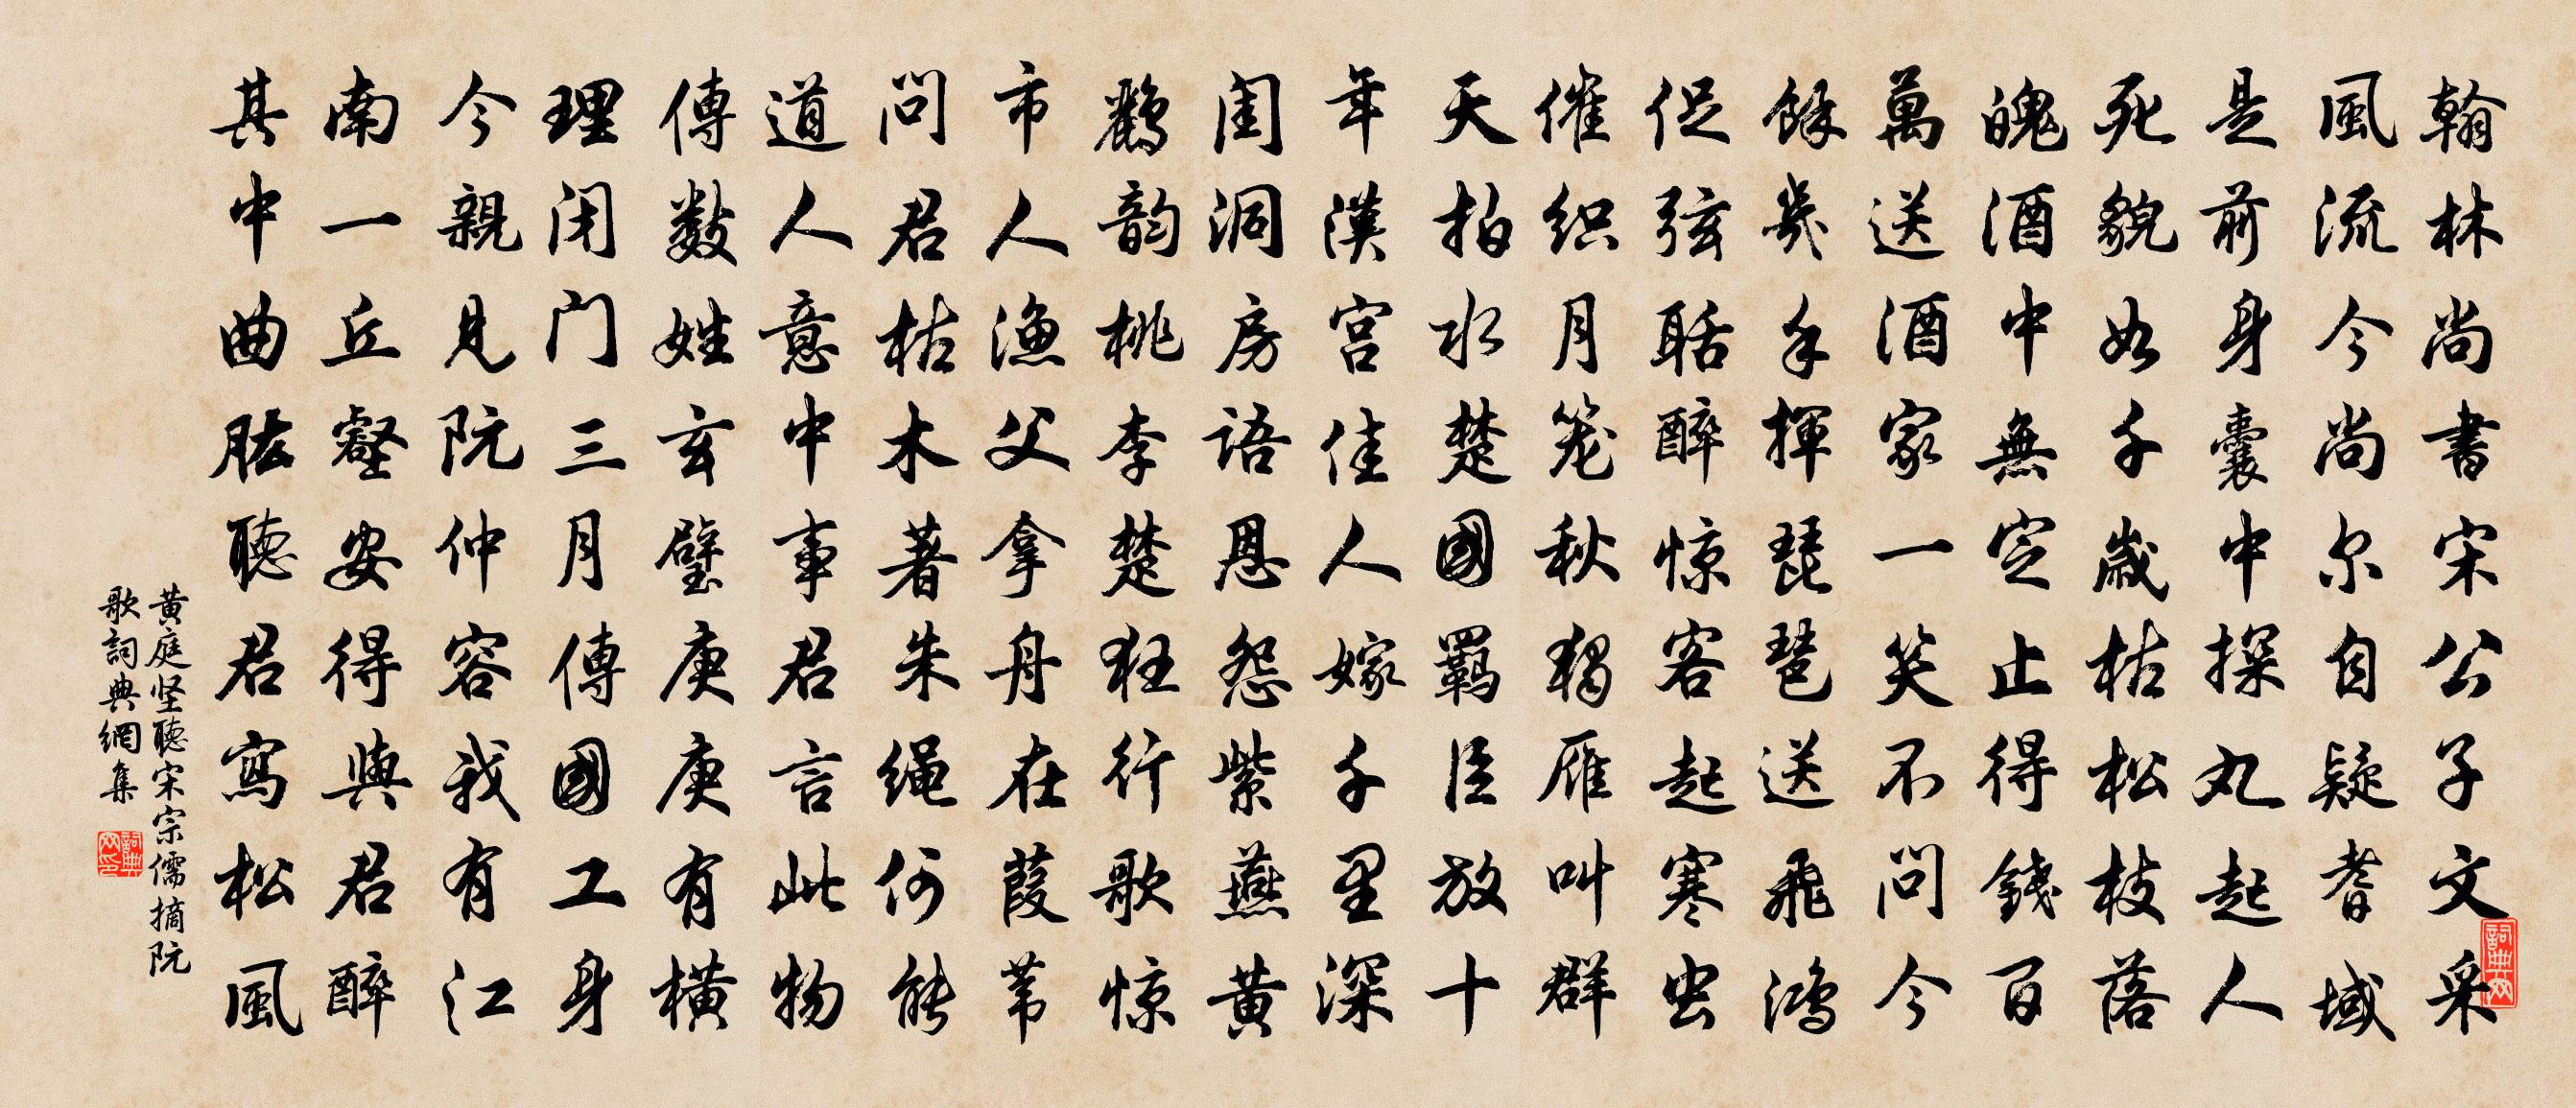 翰林尚書宋公子文采
風流今尚尔自疑耆域
是前身囊中探丸起人
死貌如千歲枯松枝落
魄酒中無定止得錢百
萬送酒家一笑不問今
餘幾手揮琵琶送飛鴻
促弦聒醉惊客起寒虫
催织月笼秋獨雁叫群
天拍水楚國羈臣放十
年漢宫佳人嫁千里深
闺洞房语恩怨紫燕黄
鹂韵桃李楚狂行歌惊
市人渔父拿舟在葭苇
問君枯木著朱绳何能
道人意中事君言此物
傳數姓玄璧庚庚有横
理闭门三月傳國工身
今親見阮仲容我有江
南一丘壑安得與君醉
其中曲肱聽君寫松風
黄庭坚聽宋宗儒摘阮
歌詞典網集